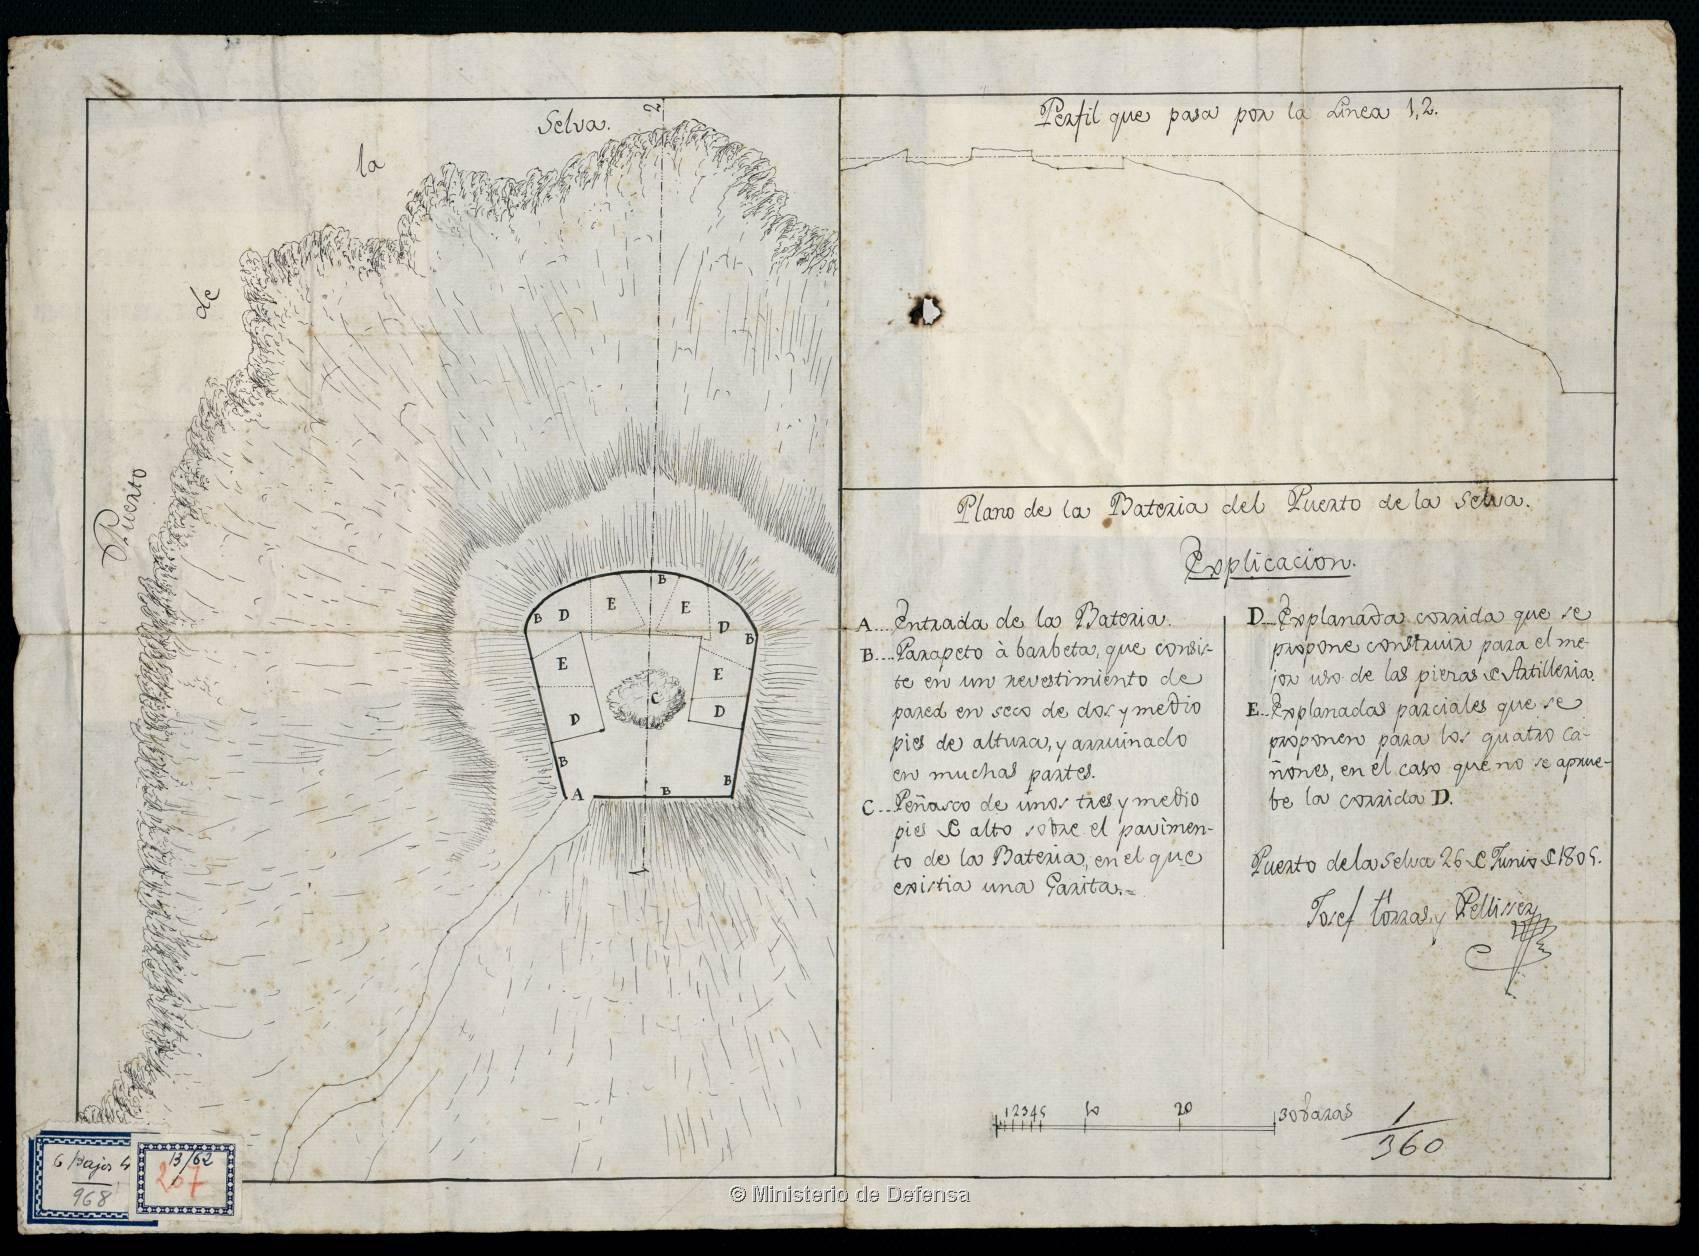 Puerto de la Selva.
2
1
B
B
D
E
E
D
B
E
E
C
D
D
B
B
A
B
Perfil que pasa por la Linea 1,2.
Plano de la Bateria del Puerto de la Selva.
Explicacion.
A... Entrada de la Bateria.
B.... Parapeto à barbeta, que consis-
te en un revestimiento de
pared en seco de dos y medio
pies de altura, y arruinado
en muchas partes.
C... Peñasco de unos tres y medio
pies de alto sobre el pavimen-
to de la Bateria, en el que
existia una Garita.=
D... Explanada corrida que se
propone construir para el me-
jor uso de las piezas de Artilleria.
E... Explanadas parciales que se
proponen para los quatro ca-
ñones, en el caso que no se aprue-
be la corrida D.
Puerto de la Selva 26 de Junio de 1805.
Josef Torras y Pellisser
1 2 3 4 5 10 20 30 Varas
1
360
6 Bajos 4
968
13/62
267
© Ministerio de Defensa